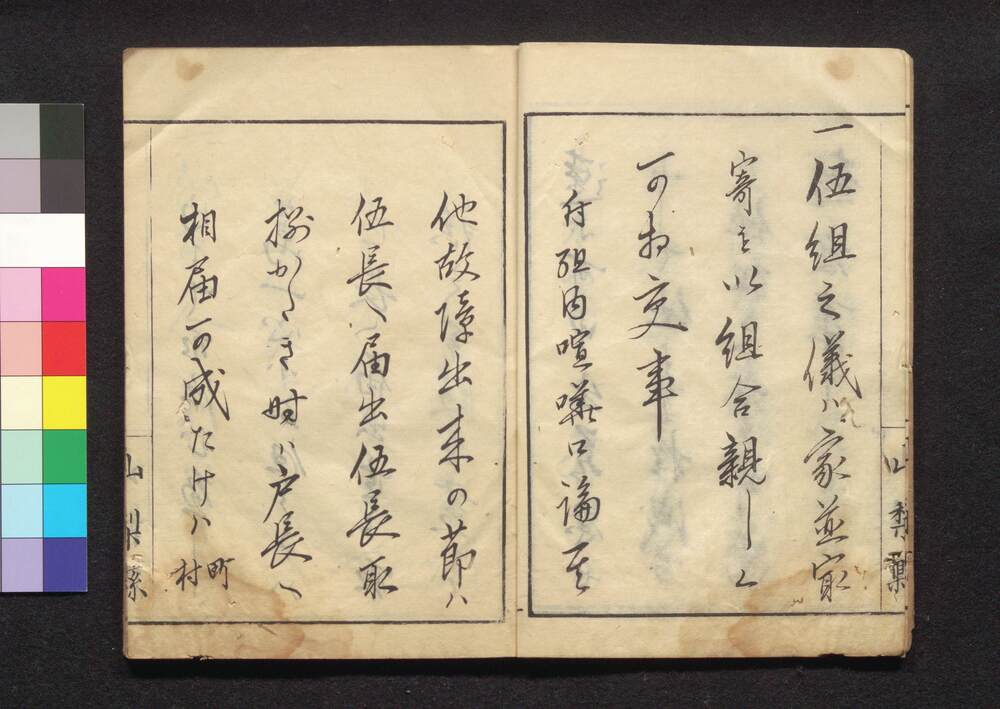 一伍組之儀ハ家並最
寄を以組合親しく
可相交事
附組内喧嘩口論其
他故障出来の節ハ
伍長へ届出伍長取
捌かたき時ハ戸長へ
相届可成たけハ町村
山梨県
山梨県